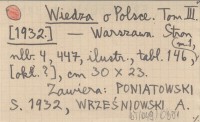 Wiedza o Polsce. Tom III.
[1932.] — Warszawa. Stron
m1,
nlb. 4, 447, ilustr., tabl. 146,
[okł.?], cm 30 x 23.
Zawiera: PONIATOWSKI
S. 1932, WRZEŚNIOWSKI A.